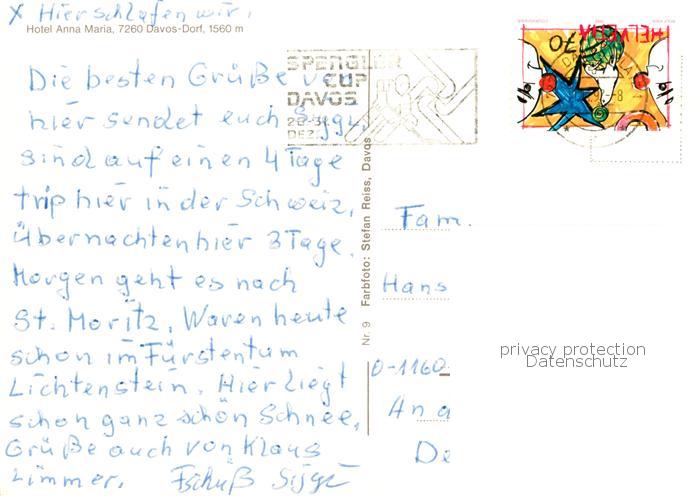 X Hier schlafen wir.
Hotel Anna Maria, 7260 Davos-Dorf, 1560 m
Die besten Grüße von
hier sendet euch Siggi,
sind auf einen 4 Tage
trip hier in der Schweiz,
übernachten hier 3 Tage.
Morgen geht es nach
St. Moritz. Waren heute
schon im Fürstentum
Lichtenstein. Hier liegt
schon ganz schön Schnee,
Grüße auch von Klaus
Zimmer. Tschüß Siggi
SPENGLER
CUP
DAVOS
DEZ.
Nr. 9 Farbfoto: Stefan Reiss, Davos
HELVETIA
70
Fam.
Hans
D-1160
An a
De
privacy protection
Datenschutz